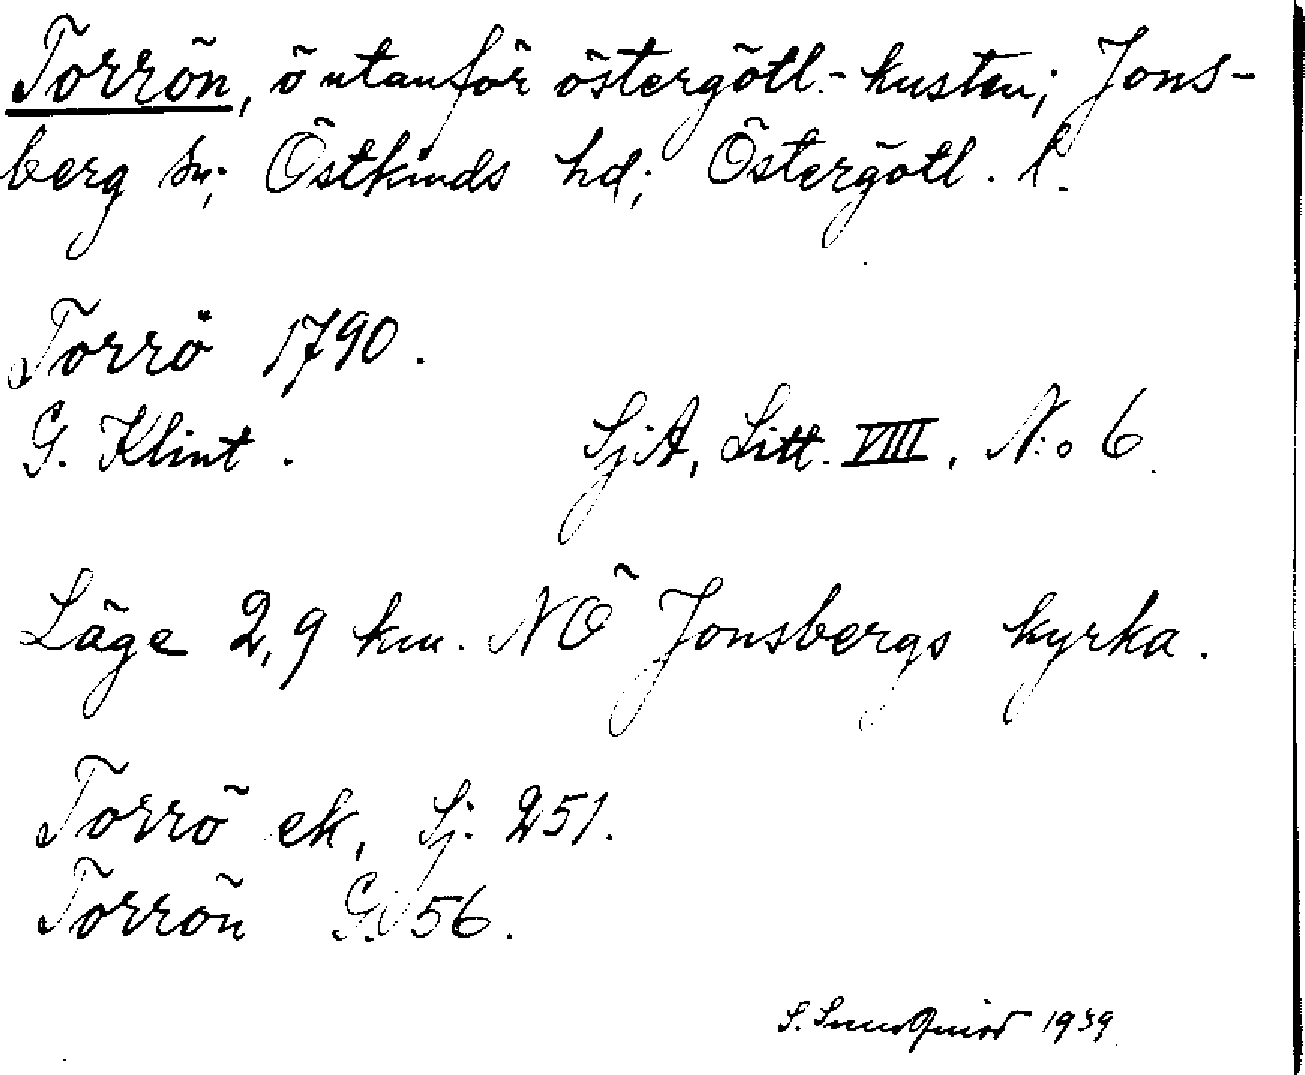 Torrön, ö utanför östergötl.-kusten; Jons-
berg sn; Östkinds hd; Östergötl. l.
Torrö 1790.
G. Klint. SjA, Litt. VIII, N:o 6.
Läge 2,9 km. NÖ Jonsbergs kyrka.
Torrö ek, Sj. 251.
Torrön G. 56.
S. Sundquist 1939